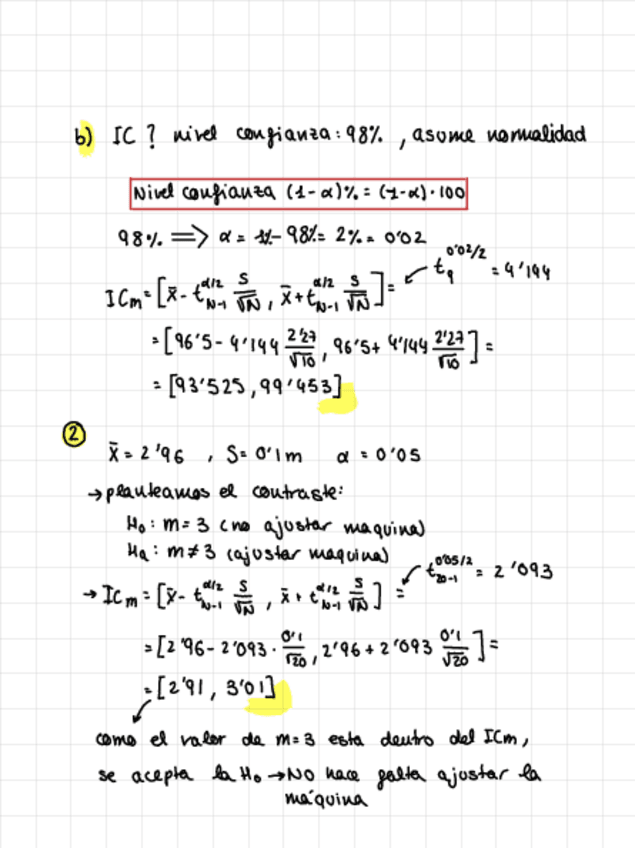 b) IC ? nivel confianza: 98% , asume normalidad
Nivel confianza (1-α)% = (1-α)·100
98% => α = 1 - 98% = 2% = 0'02
t_9^{0'02/2} = 4'144
ICm = [x̄ - t_{N-1}^{α/2} S/√N , x̄ + t_{N-1}^{α/2} S/√N] =
= [96'5 - 4'144 2'27/√10 , 96'5 + 4'144 2'27/√10] =
= [93'525 , 99'453]
②
x̄ = 2'96 , S = 0'1m α = 0'05
→ planteamos el contraste:
H₀ : m = 3 (no ajustar maquina)
Ha : m ≠ 3 (ajustar maquina)
t_{20-1}^{0'05/2} = 2'093
→ ICm = [x̄ - t_{N-1}^{α/2} S/√N , x̄ + t_{N-1}^{α/2} S/√N] =
= [2'96 - 2'093 · 0'1/√20 , 2'96 + 2'093 0'1/√20] =
= [2'91 , 3'01]
como el valor de m=3 esta dentro del ICm,
se acepta la H₀ → NO hace falta ajustar la
máquina